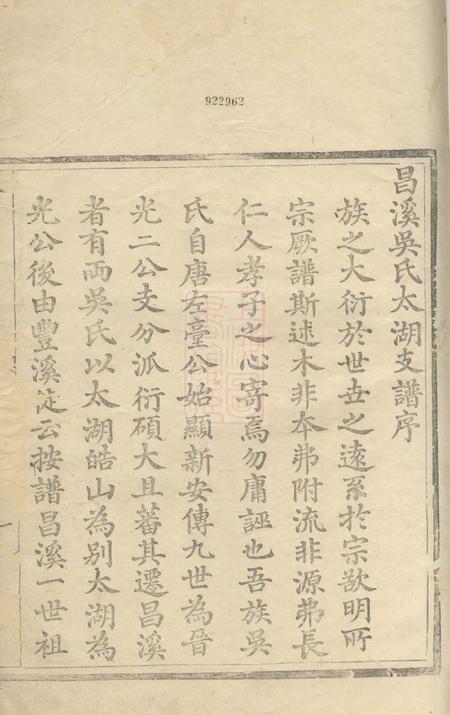 922962
昌溪吳氏太湖支譜序
族之大衍於世世之遠系於宗欲明所
宗厥譜斯述木非本弗附流非源弗長
仁人孝子之心寄焉勿庸誣也吾族吳
氏自唐左臺公始顯新安傳九世為晉
光二公支分派衍碩大且蕃其遷昌溪
者有兩吳氏以太湖皓山為別太湖為
光公後由豐溪徙云按譜昌溪一世祖